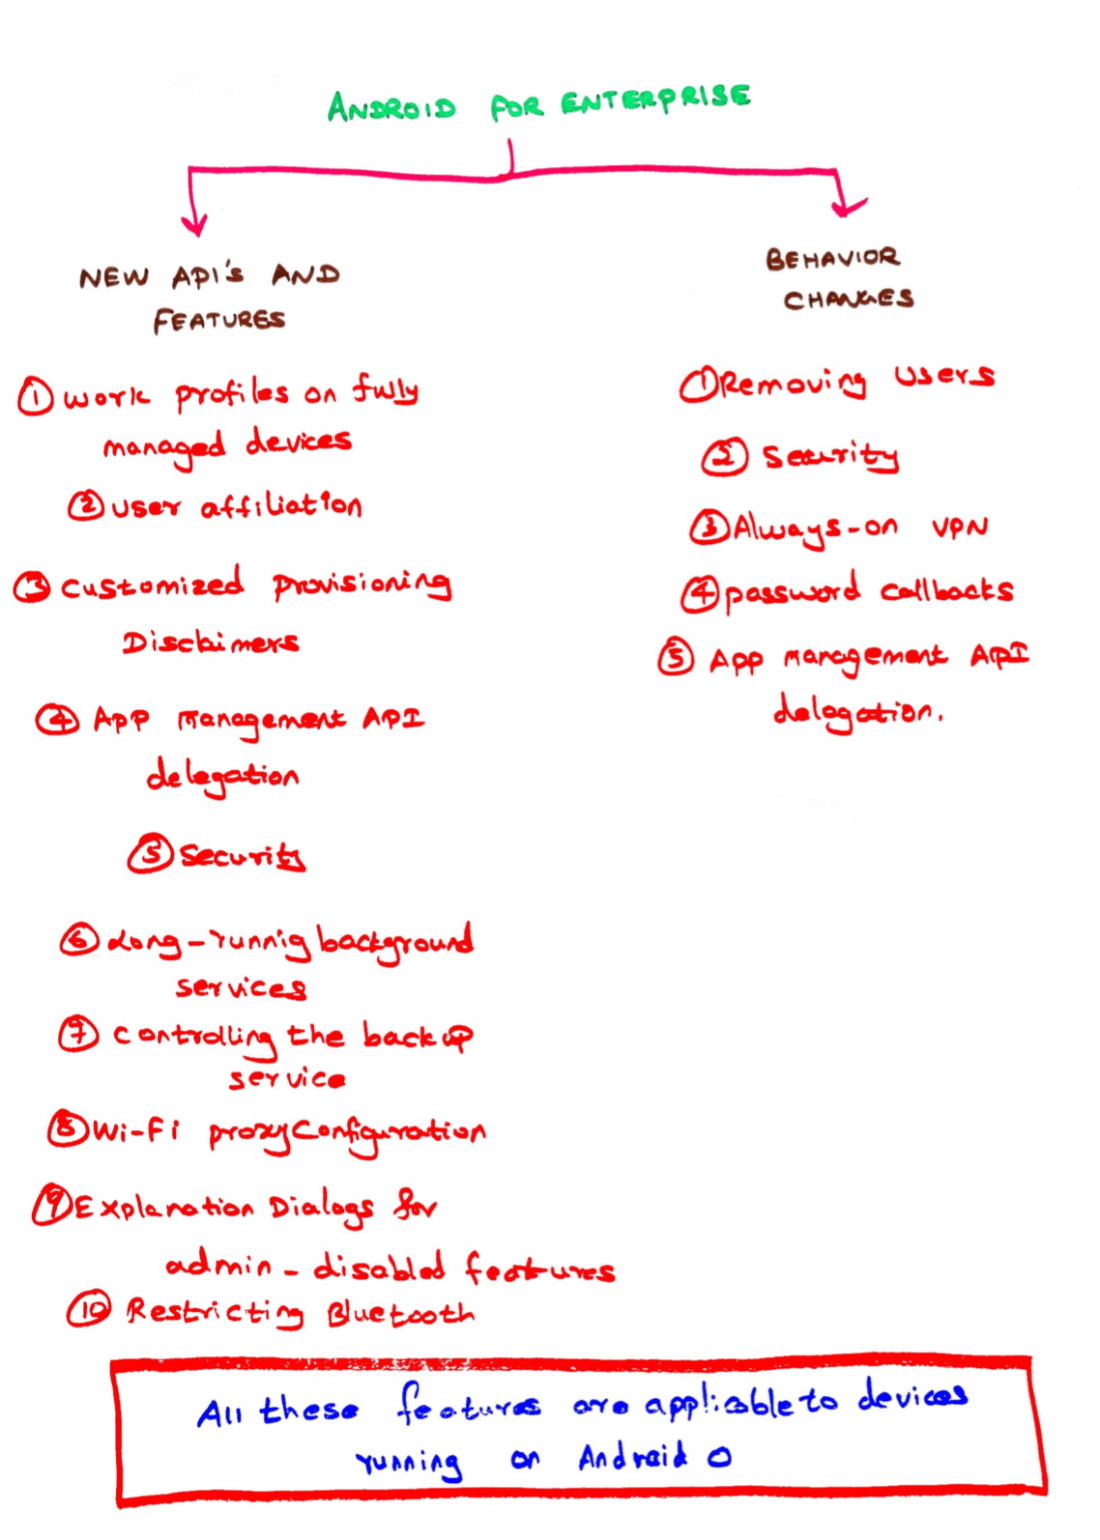 ANDROID FOR ENTERPRISE
NEW API's AND
FEATURES
① Work profiles on fully
managed devices
② User affiliation
③ Customized Provisioning
Disclaimers
④ APP Management API
delegation
⑤ Security
⑥ Long-runnig background
services
⑦ Controlling the backup
service
⑧ Wi-Fi proxy Configuration
⑨ Explanation Dialogs for
admin-disabled features
⑩ Restricting Bluetooth
BEHAVIOR
CHANGES
① Removing Users
② Security
③ Always-on VPN
④ password callbacks
⑤ App management API
delegation.
All these features are applicable to devices
running on Android O